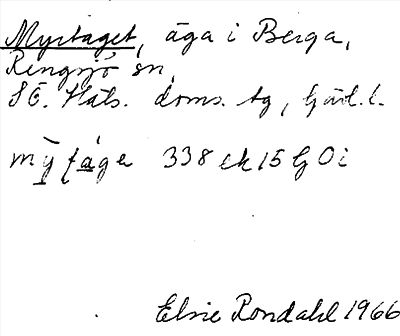 Myrtaget, äga i Berga,
Rengsjö sn,
SÖ. Häls. doms. tg, Gävl. l.
mỳ tá̱ge 338 ek 15 G Ö i
Elsie Rondahl 1966